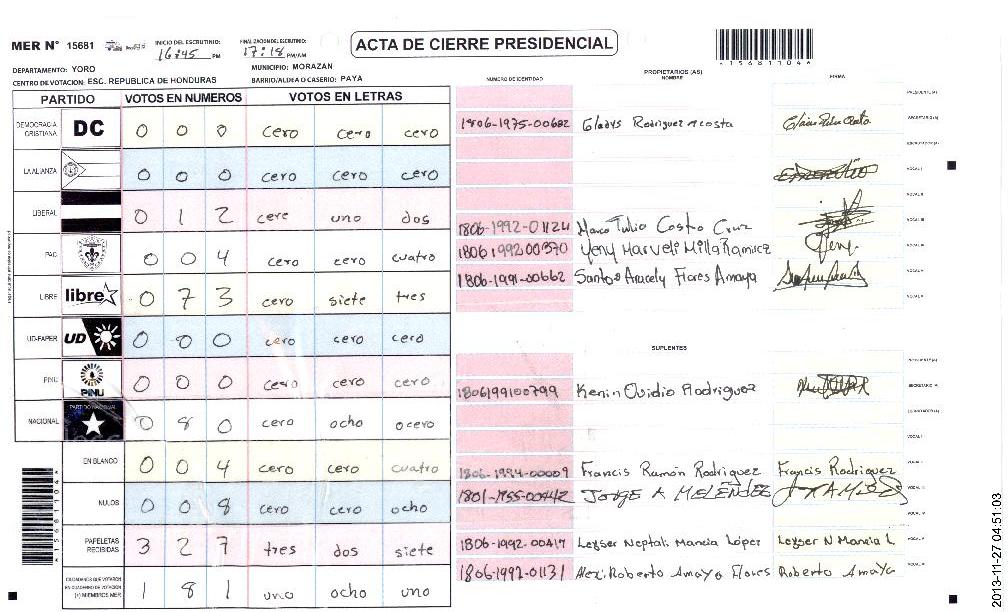 MER Nº 15681
INICIO DEL ESCRUTINIO: 16:45 PM
FINALIZACION DEL ESCRUTINIO: 17:18 PM/AM
ACTA DE CIERRE PRESIDENCIAL
*1568110 4*
DEPARTAMENTO: YORO
MUNICIPIO: MORAZAN
CENTRO DE VOTACION: ESC. REPUBLICA DE HONDURAS
BARRIO/ALDEA O CASERIO: PAYA
PARTIDO VOTOS EN NUMEROS VOTOS EN LETRAS
DEMOCRACIA CRISTIANA DC 0 0 0 cero cero cero
LA ALIANZA 0 0 0 cero cero cero
LIBERAL 0 1 2 cere uno dos
PAC 0 0 4 cero cero cuatro
LIBRE libre 0 7 3 cero siete tres
UD-FAPER UD 0 0 0 cero cero cero
PINU PINU 0 0 0 cero cero cero
NACIONAL PARTIDO NACIONAL 0 8 0 cero ocho ocero
EN BLANCO 0 0 4 cero cero cuatro
NULOS 0 0 8 cero cero ocho
PAPELETAS RECIBIDAS 3 2 7 tres dos siete
CIUDADANOS QUE VOTARON EN CUADERNO DE VOTACION (+) MIEMBROS MER 1 8 1 uno ocho uno
NUMERO DE IDENTIDAD PROPIETARIOS (AS) NOMBRE FIRMA
PRESIDENTE(A)
1806-1975-00682 Gladys Rodriguez Acosta SECRETARIO(A)
ESCRUTADOR(A)
VOCAL I
VOCAL II
1806-1992-01124 Marco Tulio Costro Cruz VOCAL III
1806199200370 Yeny Marveli Milla Ramirez Yeny. VOCAL IV
1806-1991-00662 Santos Aracely Flores Amaya VOCAL V
SUPLENTES
SECRETARIO (A)
1806199100799 Kenin Ovidio Rodriguez
VOCAL I
1806-1994-00009 Francis Ramón Rodriguez Francis Rodriguez
1801-1955-00442 JORGE A MELÉNDEZ
1806-1992-00417 Leyser Neptali Mancia López Leyser N Mancia L
1806-1992-01131 Alexi Roberto Amaya Flores Roberto Amaya
2013-11-27 04:51:03